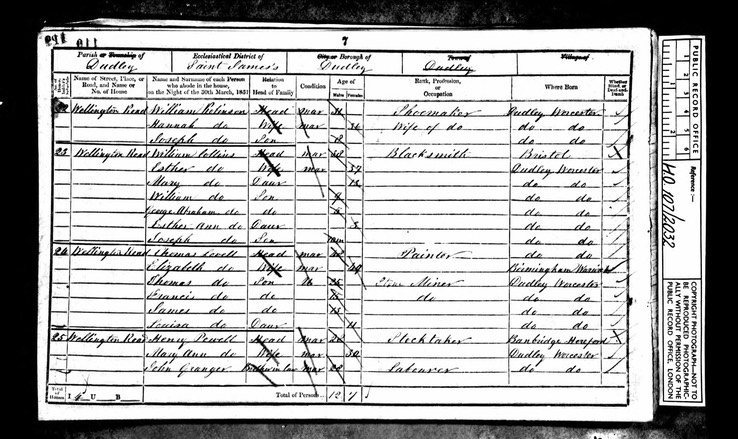 7
Parish or Township of Dudley
Ecclesiastical District of Saint James's
City or Borough of Dudley
Town of Dudley
Village of
Name of Street, Place, or Road, and Name or No. of House
Name and Surname of each Person who abode in the house, on the Night of the 30th March, 1851
Relation to Head of Family
Condition
Age of
Males Females
Rank, Profession, or Occupation
Where Born
Whether Blind, or Deaf-and-Dumb
22 Wellington Road William Robinson Head Mar Shoemaker Dudley Worcester
Hannah do Wife Mar Wife of do do do
Joseph do Son do do
23 Wellington Road William Collins Head Mar Blacksmith Bristol
Esther do Wife Mar 37 Dudley Worcester
Mary do Daur 13 do do
William do Son do do
George Abraham do do do do
Esther Ann do Daur do do
Joseph do Son do do
24 Wellington Road Thomas Lovell Head Mar Painter do do
Elizabeth do Wife Mar Birmingham Warwick
Thomas do Son Miner Dudley Worcester
Francis do do do do do
James do do do do
Louisa do Daur 11 do do
25 Wellington Road Henry Powell Head Mar Stocktaker Hereford
Mary Ann do Wife Mar 30 Dudley Worcester
John Granger Mar Labourer do do
Total of Houses I 4 U B
Total of Persons 12 7
PUBLIC RECORD OFFICE
Reference :-
H.O. 107/2032
COPYRIGHT PHOTOGRAPH—NOT TO BE REPRODUCED PHOTOGRAPHICALLY WITHOUT PERMISSION OF THE PUBLIC RECORD OFFICE, LONDON